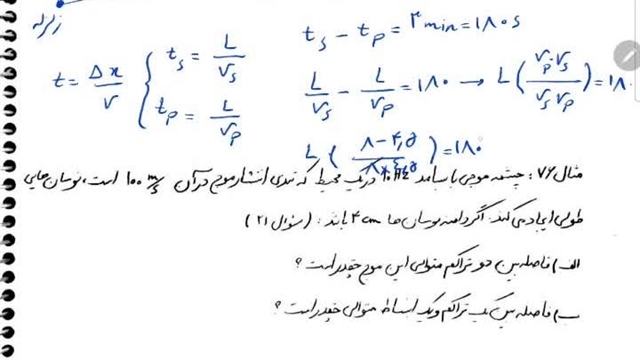 زلزله
t_s - t_p = ۳min = ۱۸۰s
t = Δx/v { t_s = L/v_s
t_p = L/v_p
L/v_s - L/v_p = ۱۸۰ → L ( v_p - v_s / v_s v_p ) = ۱۸۰
L ( ۸-۴٫۵ / ۸×۴٫۵ ) = ۱۸۰
مثال ۷۶: چشمه موجی با بسامد ۱۰Hz در یک محیط که تندی انتشار موج در آن ۱۰۰ m/s است، نوسان هایی
طولی ایجاد می کند. اگر دامنه نوسان ها ۴cm باشد: (سؤال ۲۱)
الف) فاصله بین دو تراکم متوالی این موج چقدر است؟
ب) فاصله بین یک تراکم و یک انبساط متوالی چقدر است؟